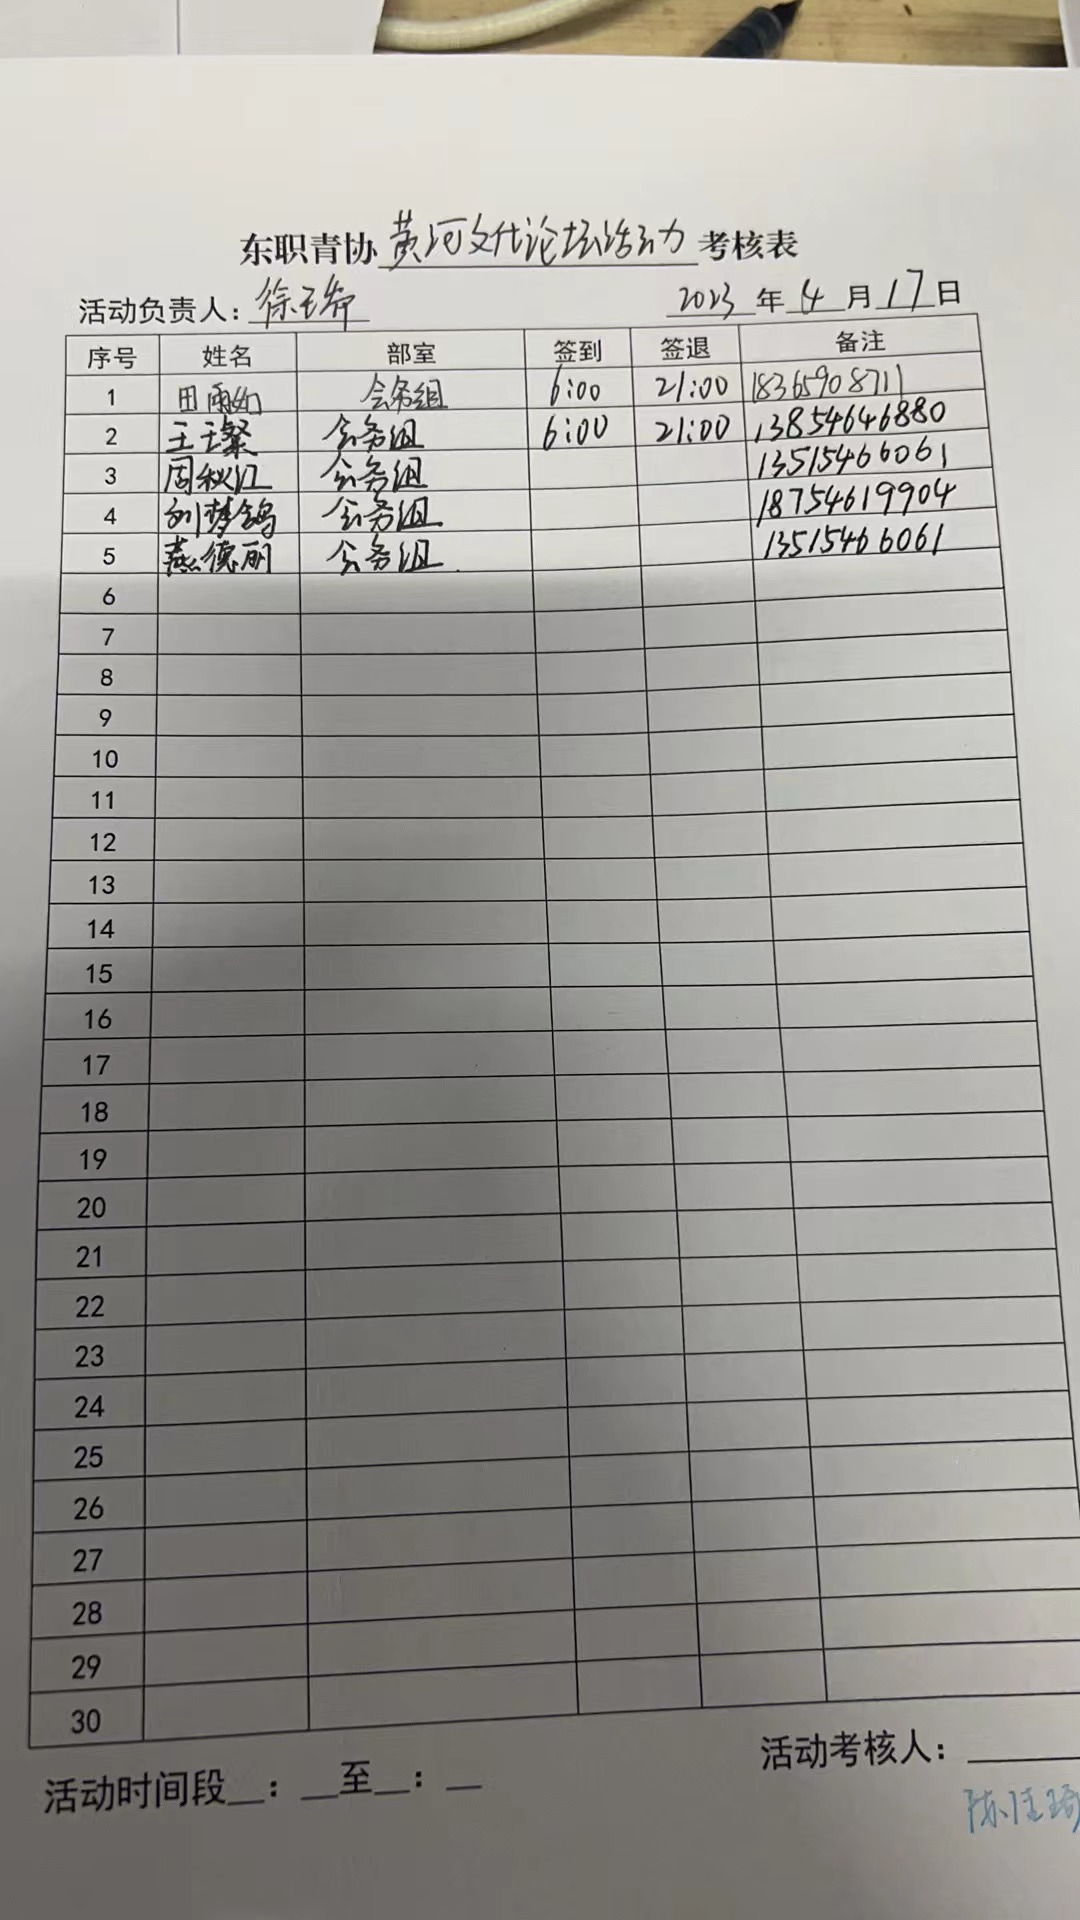 东职青协 黄河文化论坛活动 考核表
活动负责人：徐玉 2023 年 4 月 17 日
序号 姓名 部室 签到 签退 备注
1 田雨如 会务组 6:00 21:00 18365908711
2 王玉粲 会务组 6:00 21:00 13854646880
3 周秋江 会务组 13515466061
4 刘梦鸽 会务组 18754619904
5 燕德丽 会务组 13515466061
6
7
8
9
10
11
12
13
14
15
16
17
18
19
20
21
22
23
24
25
26
27
28
29
30
活动时间段__：__至__：__ 活动考核人：
陈佳琦